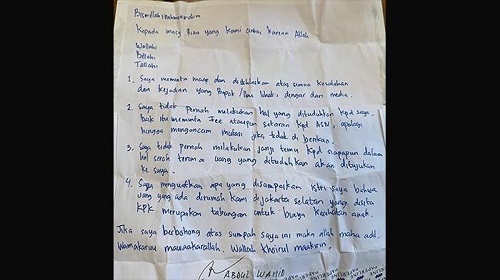 Bismillahirahmanirrahim
Kepada masy Riau yang kami cintai karena Allah
Wallahi
Billahi
Tallahi
1. Saya meminta maaf dan diikhlaskan atas semua kesalahan
dan kejadian yang Bapak/Ibu lihat, dengar dari media.
2. Saya tidak pernah melakukan hal yang dituduhkan kpd saya
baik itu meminta Fee ataupun setoran kpd ASN, apalagi
hingga mengancam mutasi jika tidak di berikan.
3. Saya tidak pernah melakukan janji temu kpd siapapun dalam
hal serah terima uang yang dituduhkan akan ditujukan
ke saya.
4. Saya menguatkan apa yang disampaikan istri saya bahwa
uang yang ada dirumah kami dijakarta selatan yang disita
KPK merupakan tabungan untuk biaya kesehatan anak.
Jika saya berbohong atas sumpah saya ini maka allah maha adil.
Wamakaru wamakarallah. Wallah khoirul maakirin.
ABDUL WAHID